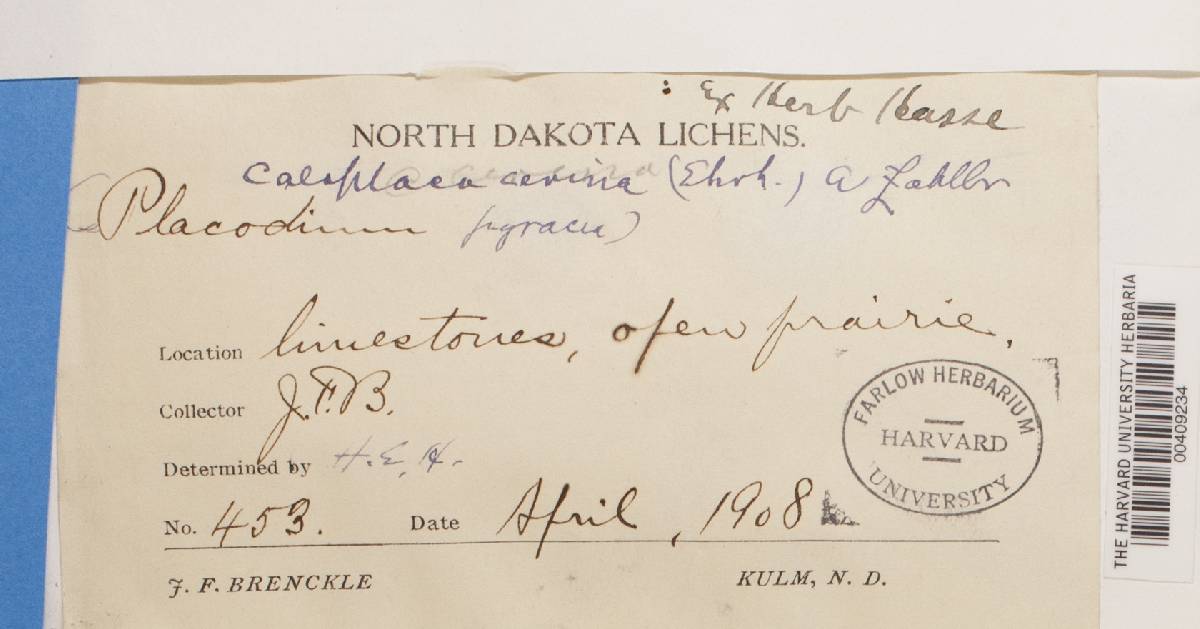 : Ex Herb Hasse
NORTH DAKOTA LICHENS.
Caloplaca cerina (Ehrh.) A Zahlbr
(Placodium pyracea)
Location limestones, open prairie.
Collector J.F.B.
Determined by H.E.H.
No. 453. Date April, 1908
J. F. BRENCKLE KULM, N. D.
FARLOW HERBARIUM
HARVARD
UNIVERSITY
THE HARVARD UNIVERSITY HERBARIA
00409234